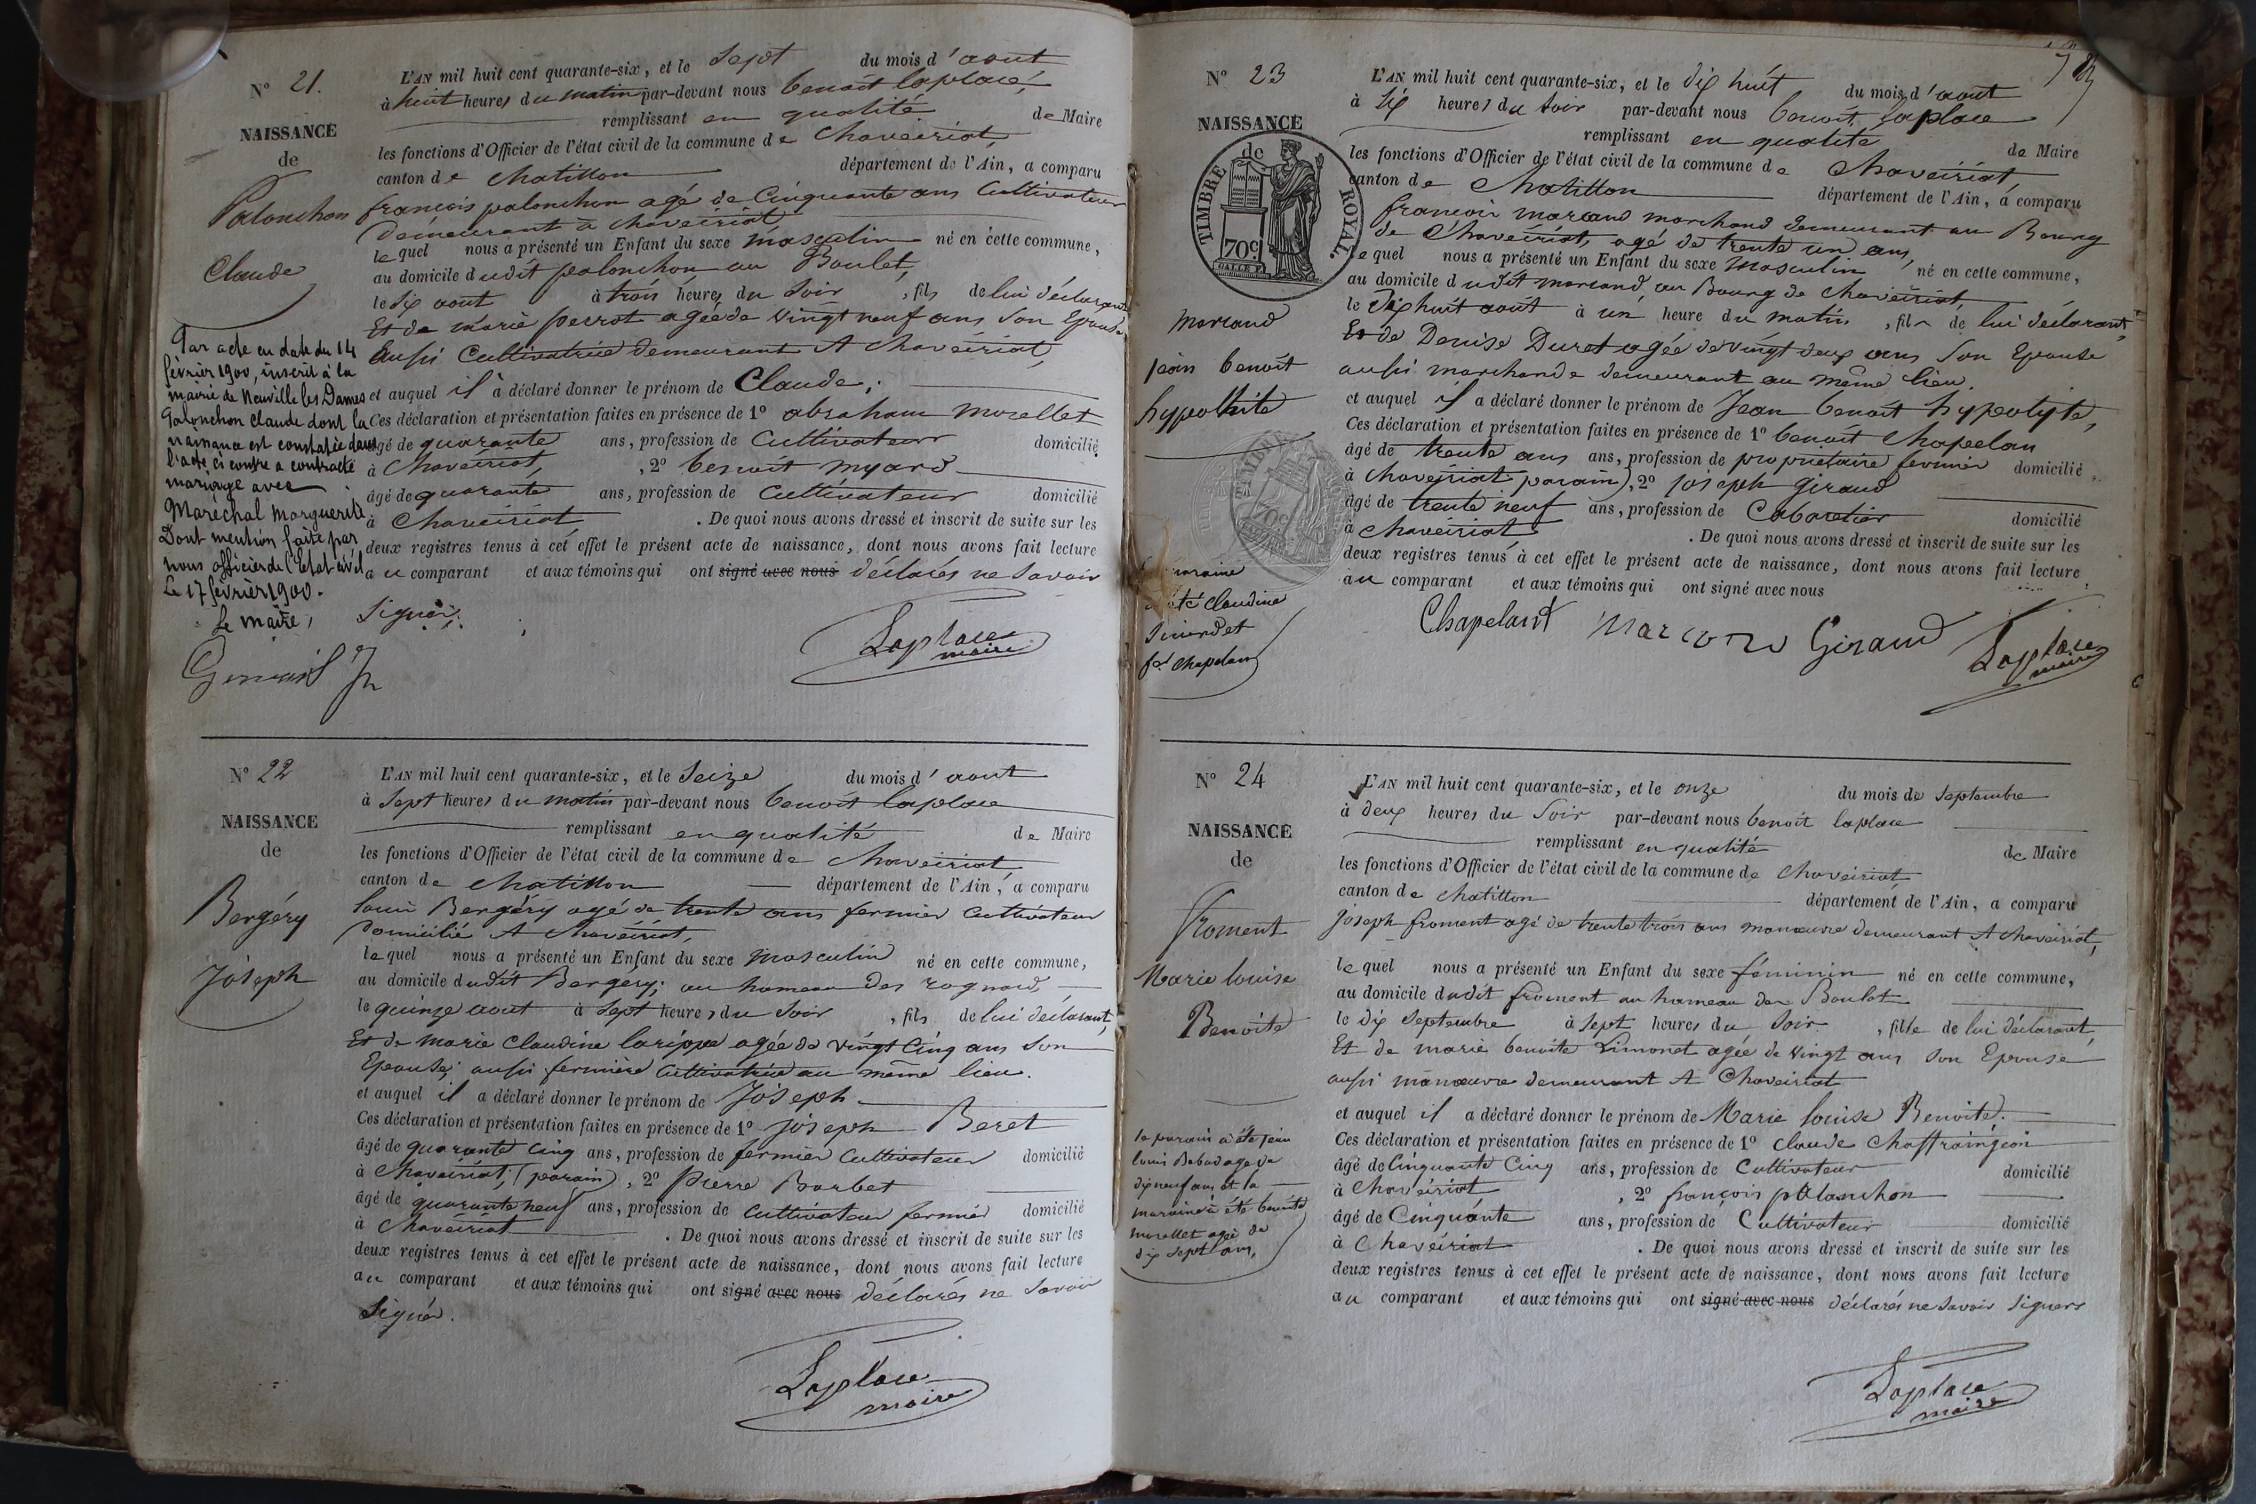 N° 21.
NAISSANCE
de
Palonchon
Claude
Par acte en date du 14
février 1900, inscrit à la
mairie de Neuville les Dames
Palonchon Claude dont la
naissance est constatée dans
l'acte ci contre a contracté
mariage avec
Maréchal Marguerite
Dont mention faite par
nous officier de l'Etat civil
Le 17 février 1900.
Le maire,
L'AN mil huit cent quarante-six, et le sept du mois d'aout
à huit heures du matin par-devant nous benoit laplace,
remplissant en qualité de Maire
les fonctions d'Officier de l'état civil de la commune de Chaveiriat,
canton de Chatillon département de l'Ain, a comparu
francois palonchon agé de Cinquante ans Cultivateur
demeurant à chaveiriat
lequel nous a présenté un Enfant du sexe masculin né en cette commune,
au domicile dudit palonchon au Boulet,
le six aout à trois heures du soir, fils de lui déclarant
Et de marie perrot agée de vingt neuf ans son Epouse
aussi Cultivatrice demeurant A Chaveiriat,
et auquel il a déclaré donner le prénom de Claude,
Ces déclaration et présentation faites en présence de 1° abraham morellet
âgé de quarante ans, profession de Cultivateur domicilié
à Chaveiriat, , 2° benoit myard
âgé de quarante ans, profession de Cultivateur domicilié
à Chaveiriat . De quoi nous avons dressé et inscrit de suite sur les
deux registres tenus à cet effet le présent acte de naissance, dont nous avons fait lecture
au comparant et aux témoins qui ont signé avec nous déclarés ne savoir
signer.
Laplace
maire
N° 22
NAISSANCE
de
Bergéry
Joseph
L'AN mil huit cent quarante-six, et le Seize du mois d'aout
à sept heures du matin par-devant nous benoit laplace
remplissant en qualité de Maire
les fonctions d'Officier de l'état civil de la commune de Chaveiriat
canton de Chatillon département de l'Ain, a comparu
louis Bergéry agé de trente ans fermier Cultivateur
domicilié A Chaveiriat,
lequel nous a présenté un Enfant du sexe masculin né en cette commune,
au domicile dudit Bergery; au hameau des rognard,
le quinze aout à sept heures du soir, fils de lui déclarant,
Et de marie Claudine larippe agée de vingt Cinq ans son
Epouse, aussi fermière Cultivatrice au même lieu.
et auquel il a déclaré donner le prénom de Joseph
Ces déclaration et présentation faites en présence de 1° joseph Beret
âgé de quarante Cinq ans, profession de fermier Cultivateur domicilié
à Chaveiriat, (parain), 2° Pierre Barbet
âgé de quarante neuf ans, profession de Cultivateur fermier domicilié
à Chaveiriat . De quoi nous avons dressé et inscrit de suite sur les
deux registres tenus à cet effet le présent acte de naissance, dont nous avons fait lecture
au comparant et aux témoins qui ont signé avec nous déclarés ne savoir
signér.
Laplace
maire
N° 23
NAISSANCE
de
TIMBRE ROYAL.
70c.
Morland
jean benoit
hypolhite
marraine
été claudine
fe chapelan
L'AN mil huit cent quarante-six, et le dix huit du mois d'aout
à six heures du soir par-devant nous benoit laplace
remplissant en qualité de Maire
les fonctions d'Officier de l'état civil de la commune de Chaveiriat,
canton de Chatillon département de l'Ain, a comparu
francois marcand marchand demeurant au Bourg
de Chaveiriat, agé de trente un ans,
lequel nous a présenté un Enfant du sexe Masculin né en cette commune,
au domicile dudit marcand, au Bourg de Chaveiriat,
le dix huit aout à un heure du matin, fils de lui déclarant
Et de Denise Duret agée de vingt deux ans son Epouse
aussi marchande demeurant au même lieu.
et auquel il a déclaré donner le prénom de Jean benoit hypolyte,
Ces déclaration et présentation faites en présence de 1° benoit Chapelan
âgé de trente ans ans, profession de propriétaire fermier domicilié
à Chaveiriat parain), 2° joseph giraud
âgé de trente neuf ans, profession de Cabaretier domicilié
à Chaveiriat . De quoi nous avons dressé et inscrit de suite sur les
deux registres tenus à cet effet le présent acte de naissance, dont nous avons fait lecture
au comparant et aux témoins qui ont signé avec nous
Chapeland Giraud Laplace
maire
N° 24
NAISSANCE
de
froment
Marie louise
Benoite
le parain a été jean
louis Babad agé de
dix neuf ans et la
marraine a été benoite
morellet agée de
dix sept ans,
L'AN mil huit cent quarante-six, et le onze du mois de septembre
à deux heures du soir par-devant nous benoit laplace
remplissant en qualité de Maire
les fonctions d'Officier de l'état civil de la commune de Chaveiriat
canton de Chatillon département de l'Ain, a comparu
joseph froment agé de trente trois ans manœuvre demeurant A Chaveiriat,
lequel nous a présenté un Enfant du sexe féminin né en cette commune,
au domicile dudit froment au hameau des Boulot
le dix septembre à sept heures du soir, fille de lui déclarant,
Et de marie benoite Limonet agée de vingt ans son Epouse
aussi manœuvre demeurant A Chaveiriat
et auquel il a déclaré donner le prénom de Marie louise Benoite.
Ces déclaration et présentation faites en présence de 1° claude Chaffraingeon
âgé de Cinquante Cinq ans, profession de Cultivateur domicilié
à Chaveiriat , 2° françois palanchon
âgé de Cinquante ans, profession de Cultivateur domicilié
à Chaveiriat . De quoi nous avons dressé et inscrit de suite sur les
deux registres tenus à cet effet le présent acte de naissance, dont nous avons fait lecture
au comparant et aux témoins qui ont signé avec nous déclarés ne savoir signers
Laplace
maire